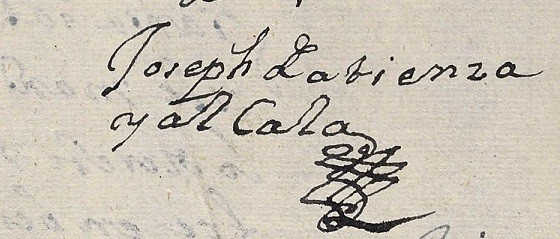 Joseph Latienza
y al Cala